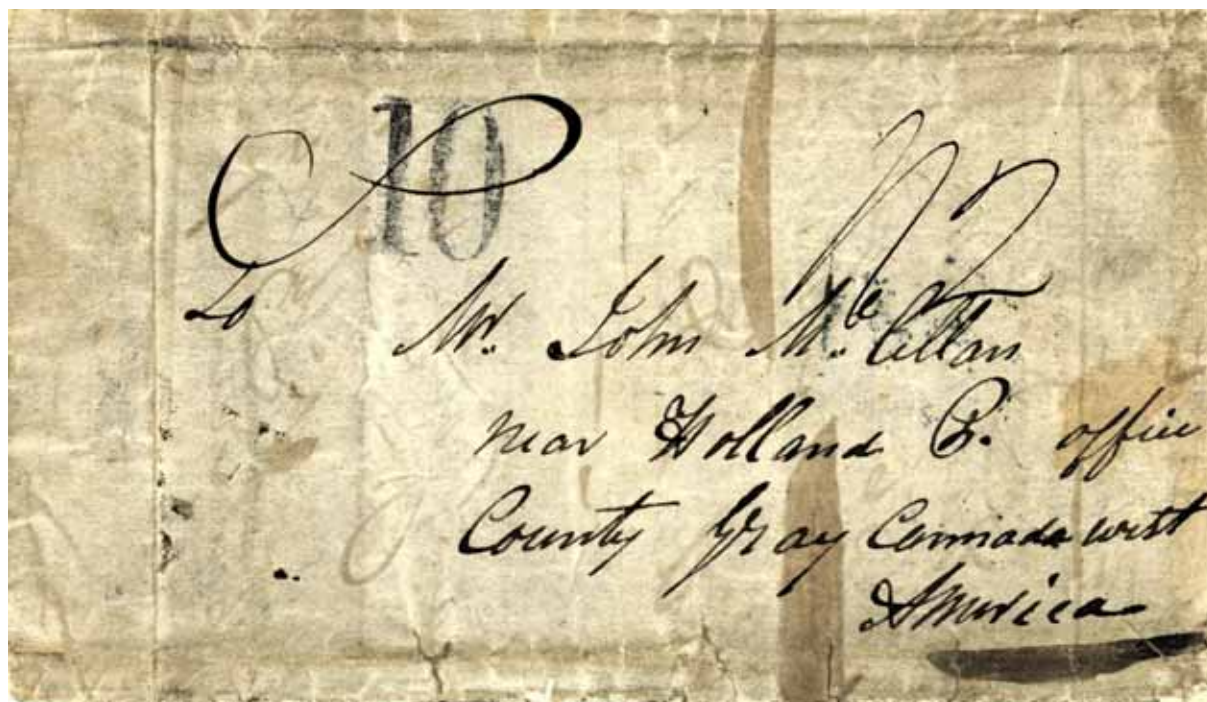 10
To
Mr. John
near Holland P. office
County Gray Cannada west
America